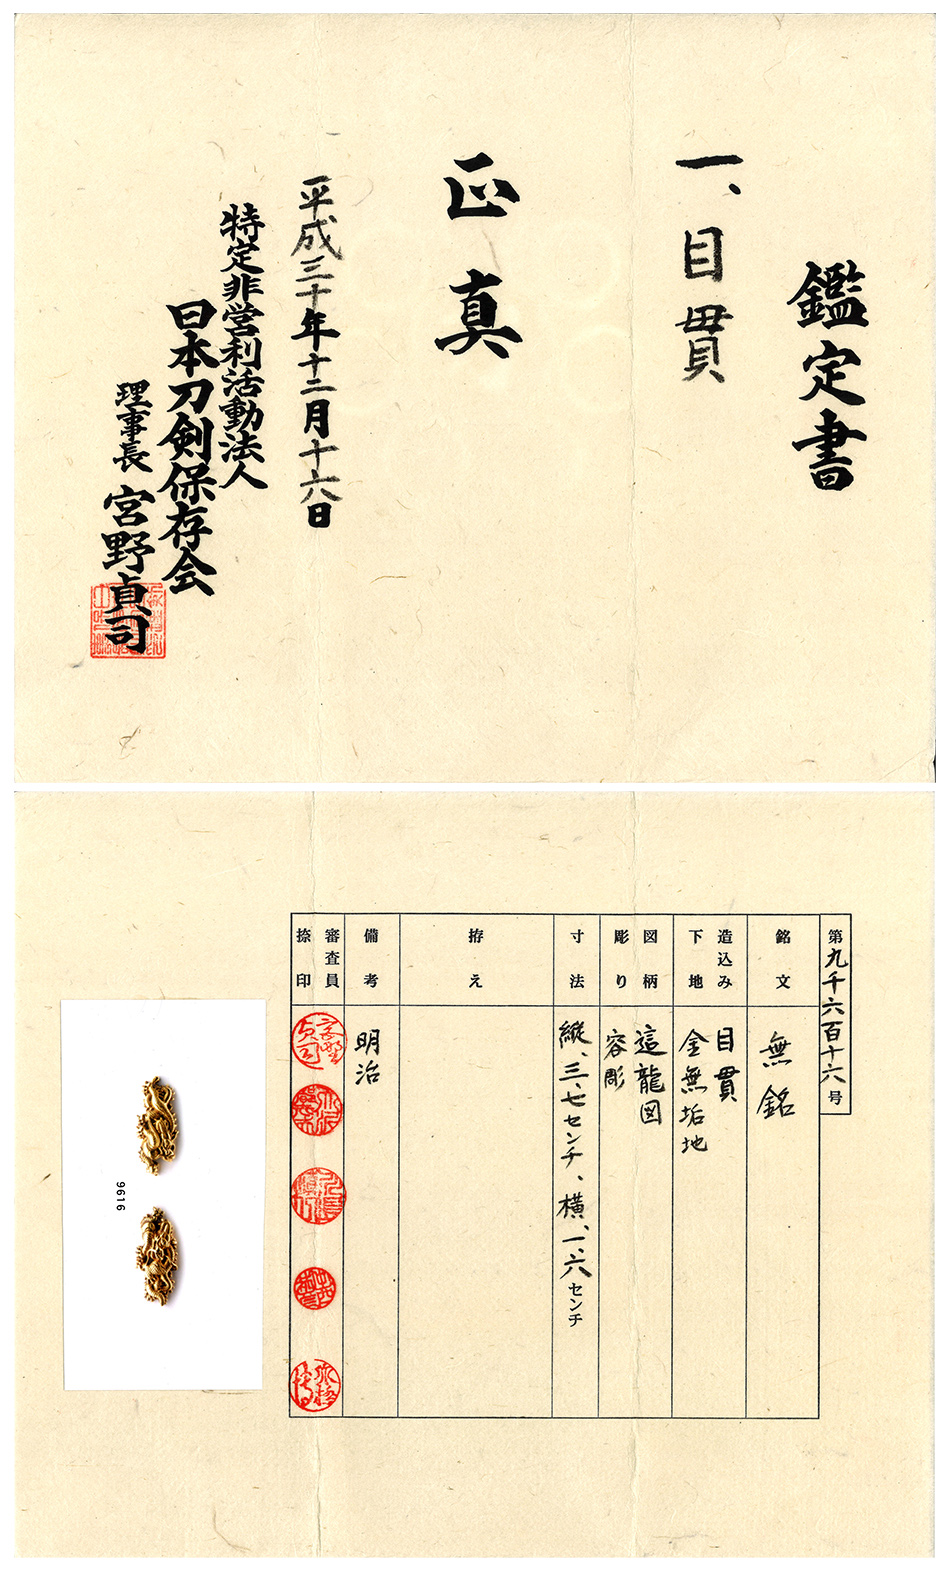 鑑定書
一、目貫
正真
平成三十年十二月十六日
特定非営利活動法人
日本刀剣保存会
理事長 宮野貞司
第九千六百十六号
銘文
無銘
造込み
下地
目貫
金無垢地
図柄
彫り
這龍図
容彫
寸法
縦、三、七センチ、横、一、六センチ
拵え
備考
明治
審査員
捺印
9616